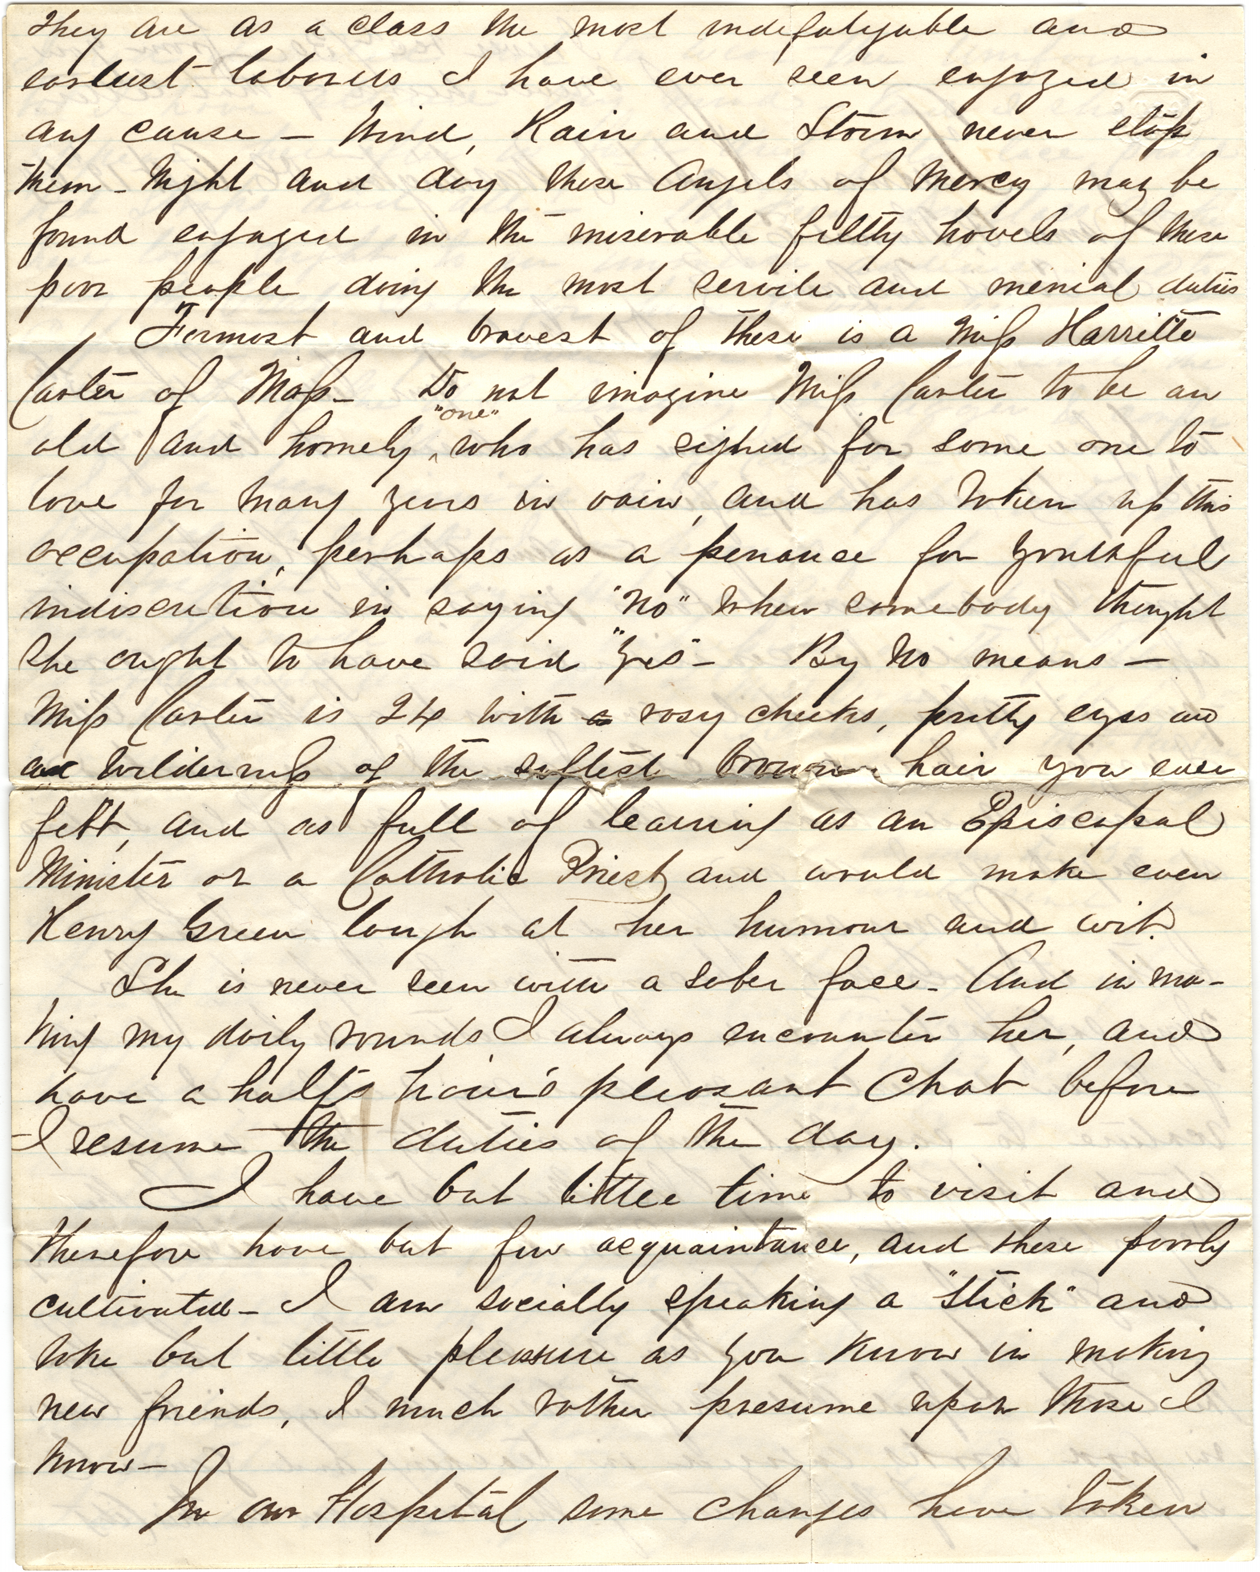 They are as a class the most indefatyable and
earnest laborers I have ever seen engaged in
any cause — Wind, Rain and Storm never stop
them – Night and day these Angels of Mercy may be
found engaged in the miserable filthy hovels of these
poor people doing the most servile and menial duties
Formost and bravest of these is a Miss Harritte
Carter of Mass – Do not imagine Miss Carter to be an
old and homely "one" who has sighed for some one to
love for many years in vain, and has taken up this
occupation, perhaps as a penance for youthful
indiscretion in saying "No" when somebody thought
she ought to have said "Yes" – By No means –
Miss Carter is 24 with a rosy cheeks, pretty eyes and
a wilderness of the softest brown hair you ever
felt, and as full of learning as an Episcopal
Minister or a Catholic Priest and would make even
Henry Green laugh at her humour and wit.
She is never seen with a sober face – And in ma-
king my daily rounds I always encounter her, and
have a halfs hour's pleasant chat before
I resume the duties of the day.
I have but little time to visit and
therefore have but few acquaintance, and these poorly
cultivated – I am socially speaking a "stick" and
take but little pleasure as you know in making
new friends, I much rather presume upon those I
know –
In our Hospital some changes have taken